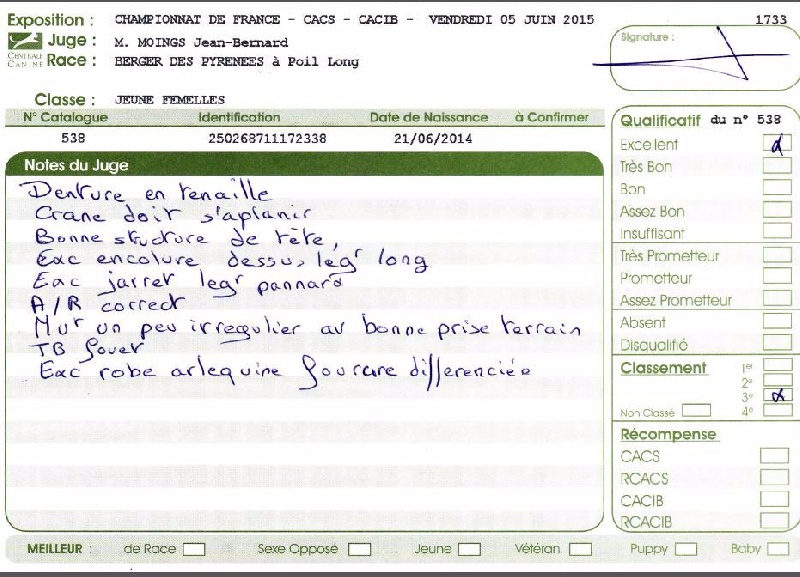 Exposition : CHAMPIONNAT DE FRANCE - CACS - CACIB - VENDREDI 05 JUIN 2015 1733
CENTRALE CANINE
Juge : M. MOINGS Jean-Bernard
Race : BERGER DES PYRENEES à Poil Long
Signature :
Classe : JEUNE FEMELLES
N° Catalogue Identification Date de Naissance à Confirmer
538 250268711172338 21/06/2014
Notes du Juge
Denture en tenaille
Crane doit s'aplanir
Bonne structure de tête,
Exc encolure dessus legr long
Exc jarret legr pannard
A/R correct
Mvt un peu irregulier av bonne prise terrain
TB fouet
Exc robe arlequine fourrure differenciée
Qualificatif du n° 538
Excellent α
Très Bon
Bon
Assez Bon
Insuffisant
Très Prometteur
Prometteur
Assez Prometteur
Absent
Disqualifié
Classement 1er
2e
3e α
Non Classé 4e
Récompense
CACS
RCACS
CACIB
RCACIB
MEILLEUR : de Race Sexe Opposé Jeune Vétéran Puppy Baby